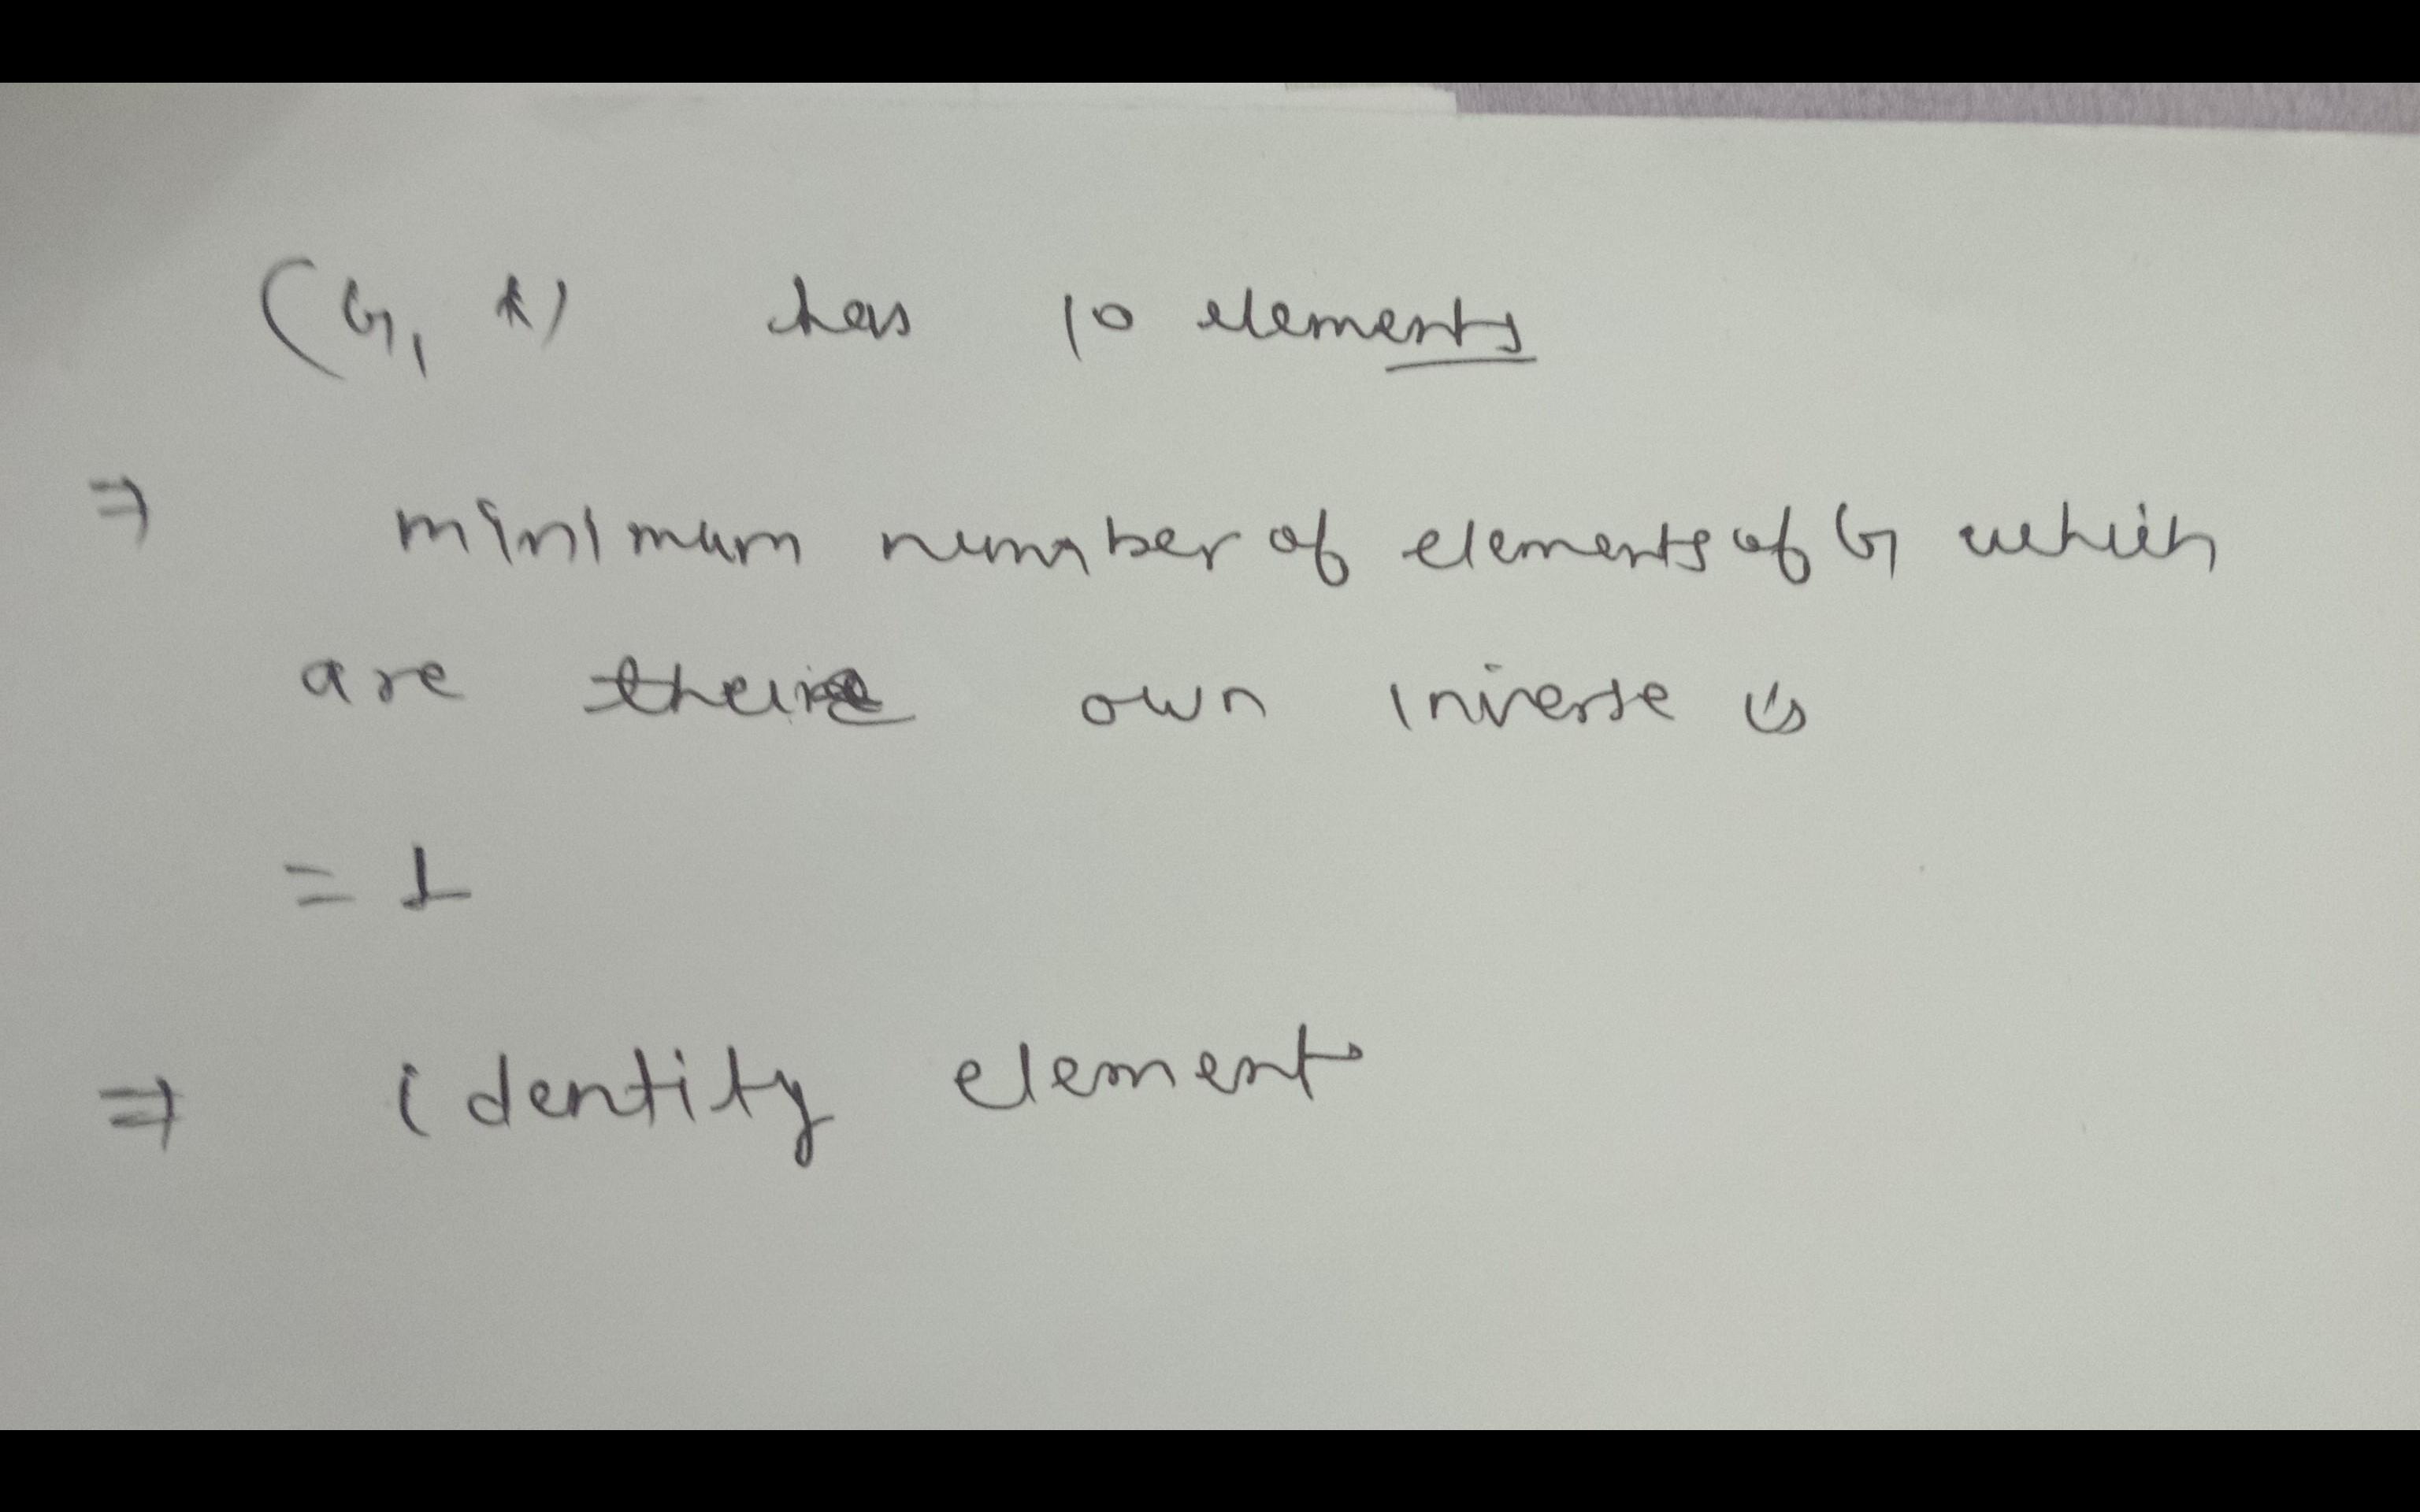 (G, *) has 10 elements
⇒ minimum number of elements of G which
are their own inverse is
= 1
⇒ identity element